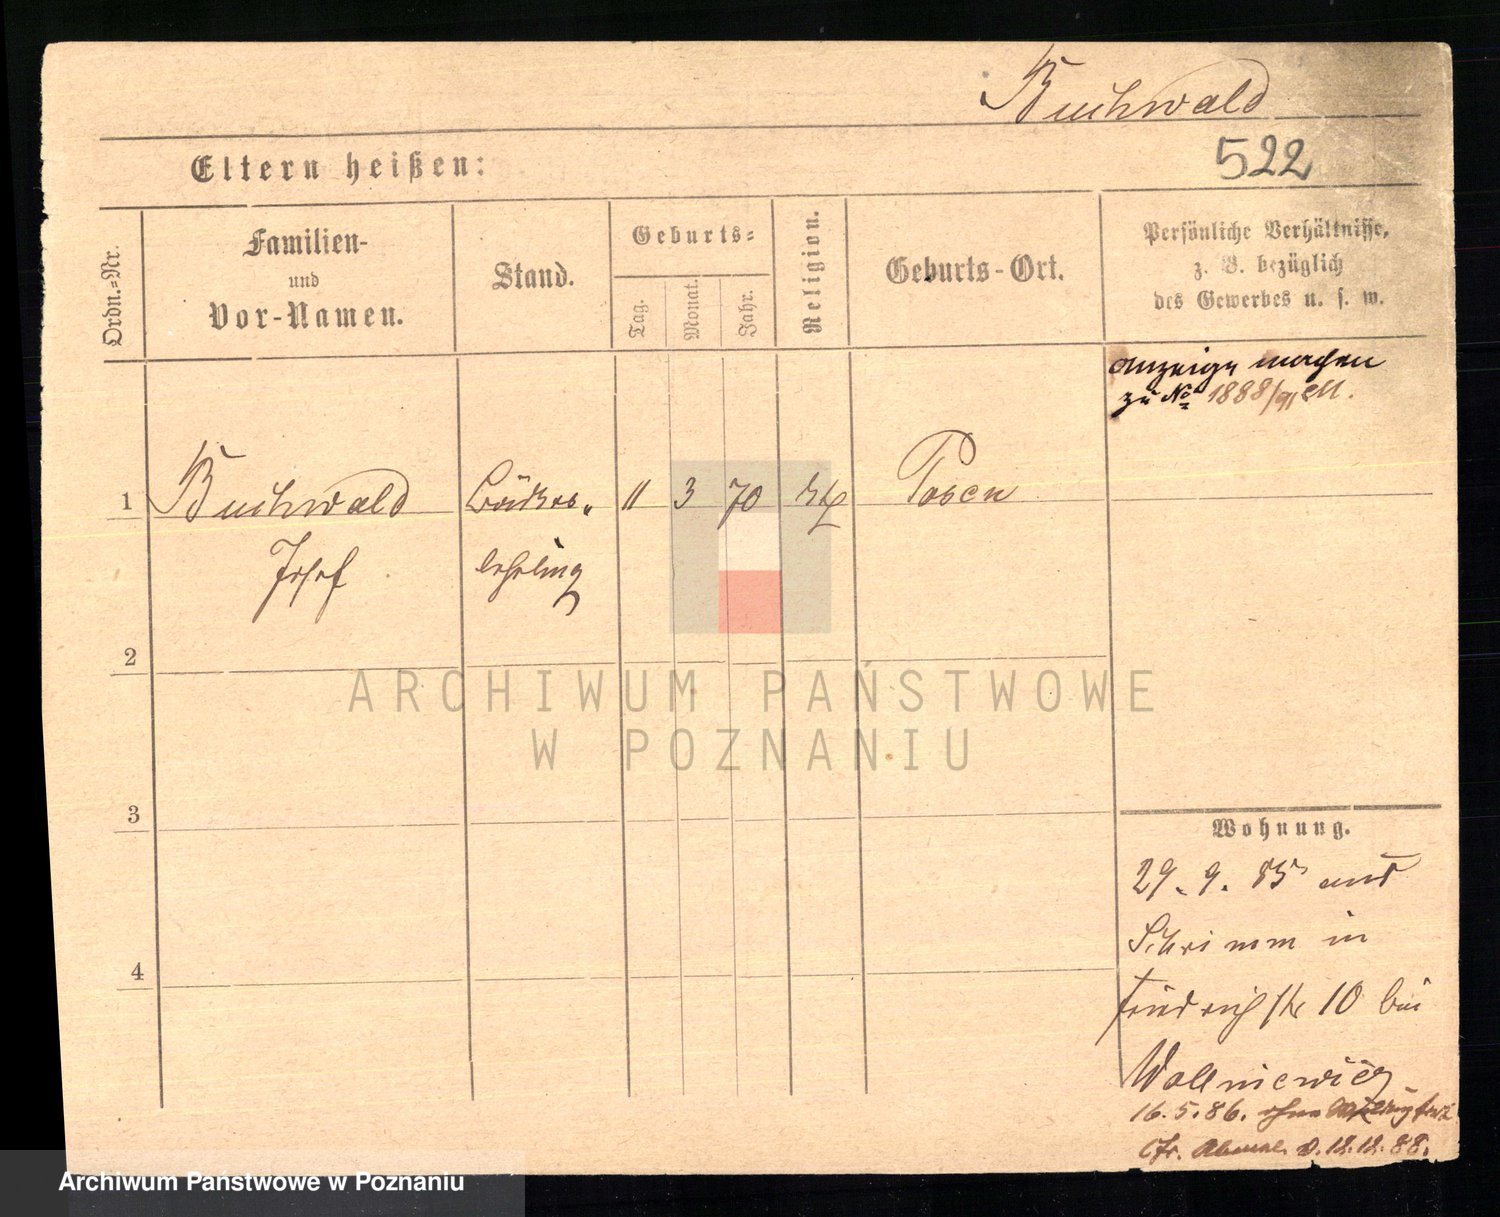 Buchwald
522
Eltern heißen:
Ordn.-Nr.
Familien-
und
Vor-Namen.
Stand.
Geburts-
Tag.
Monat.
Jahr.
Religion.
Geburts-Ort.
Persönliche Verhältnisse,
z. B. bezüglich
des Gewerbes u. s. w.
Anzeige machen
zu No 1888/91 M.
1
Buchwald
Josef
Böttcher-
lehrling
11
3
70
Posen
2
3
4
ARCHIWUM PAŃSTWOWE
W POZNANIU
Wohnung.
29. 9. 85 aus
Schrimm in
Friedrichstr 10 bei
Wollniewicz
16. 5. 86. ohne
cfr. v. 12.12.88.
Archiwum Państwowe w Poznaniu